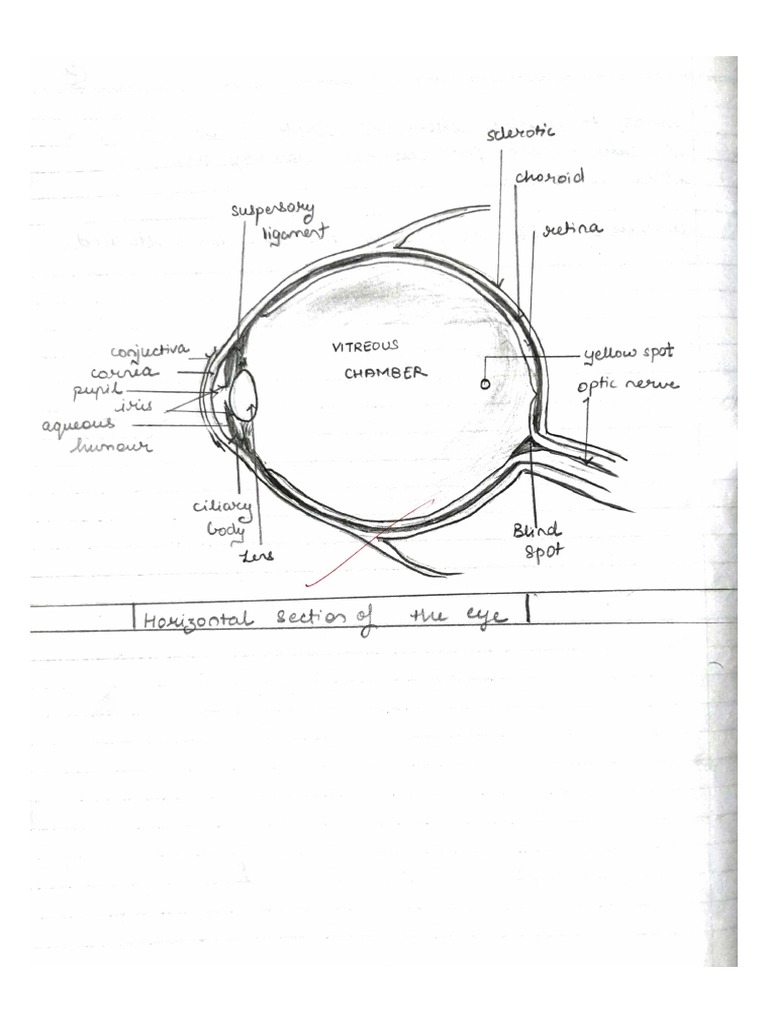 sclerotic
choroid
suspersory
ligament
retina
conjuctiva
cornea
pupil
iris
aqueous
humour
VITREOUS
CHAMBER
yellow spot
optic nerve
ciliary
body
Lens
Blind
spot
Horizontal section of the eye